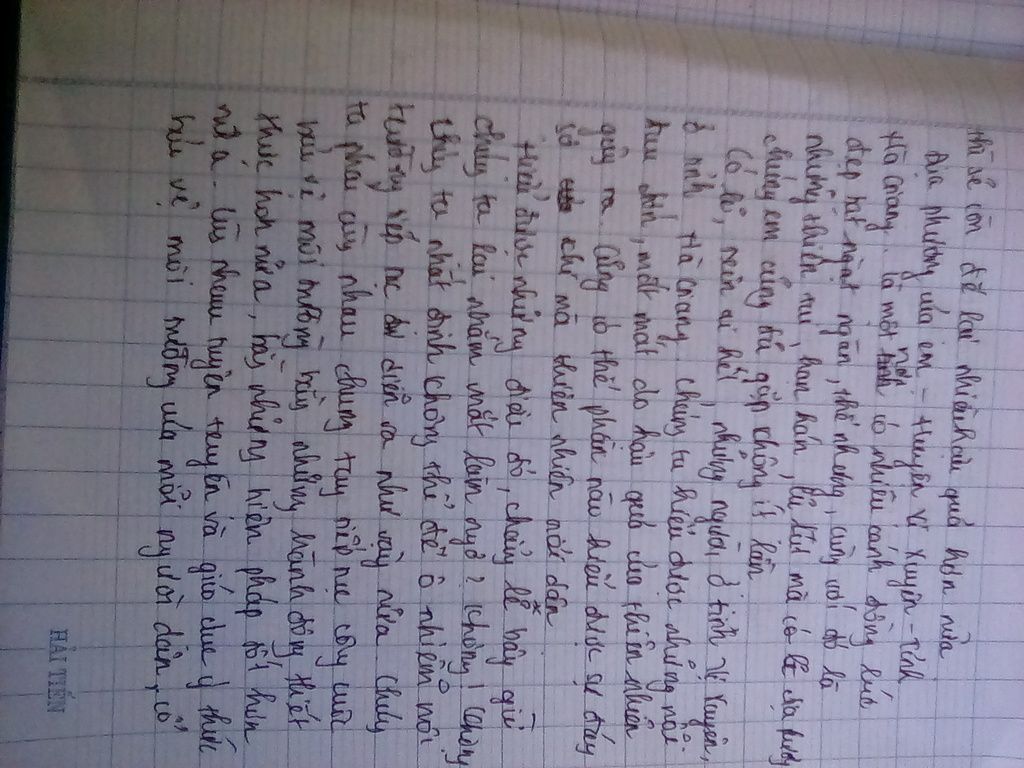 thì sẽ còn để lại nhiều hậu quả hơn nữa
Địa phương của em - Huyện Vị Xuyên - Tỉnh
Hà Giang là một nơi có nhiều cánh đồng lúa
đẹp bát ngát ngàn, thế nhưng, cùng với đó là
những thiên tai, hạn hán, lũ lụt mà có lẽ địa phương
chúng em cũng đã gặp không ít lần
Có lẽ, hơn ai hết những người ở tỉnh Vị Xuyên,
ở tỉnh Hà Giang, chúng ta hiểu được những nỗi
đau đớn, mất mát do hậu quả của thiên nhiên
gây ra. Cũng có thể phần nào hiểu được sự đáng
sợ mà thiên nhiên nổi dần
Hiểu được những điều đó, chẳng lẽ bây giờ
chúng ta lại nhắm mắt làm ngơ? Không! Chúng
ta nhất định không thể để ô nhiễm môi
trường tiếp tục diễn ra như vậy nữa. Chúng
ta phải cùng nhau chung tay tiếp tục công cuộc
bảo vệ môi trường bằng những hành động thiết
thực hơn nữa, bằng những biện pháp tốt hơn
nữa. Cùng nhau tuyên truyền và giáo dục ý thức
bảo vệ môi trường của mỗi người dân, có
HẢI TIẾN